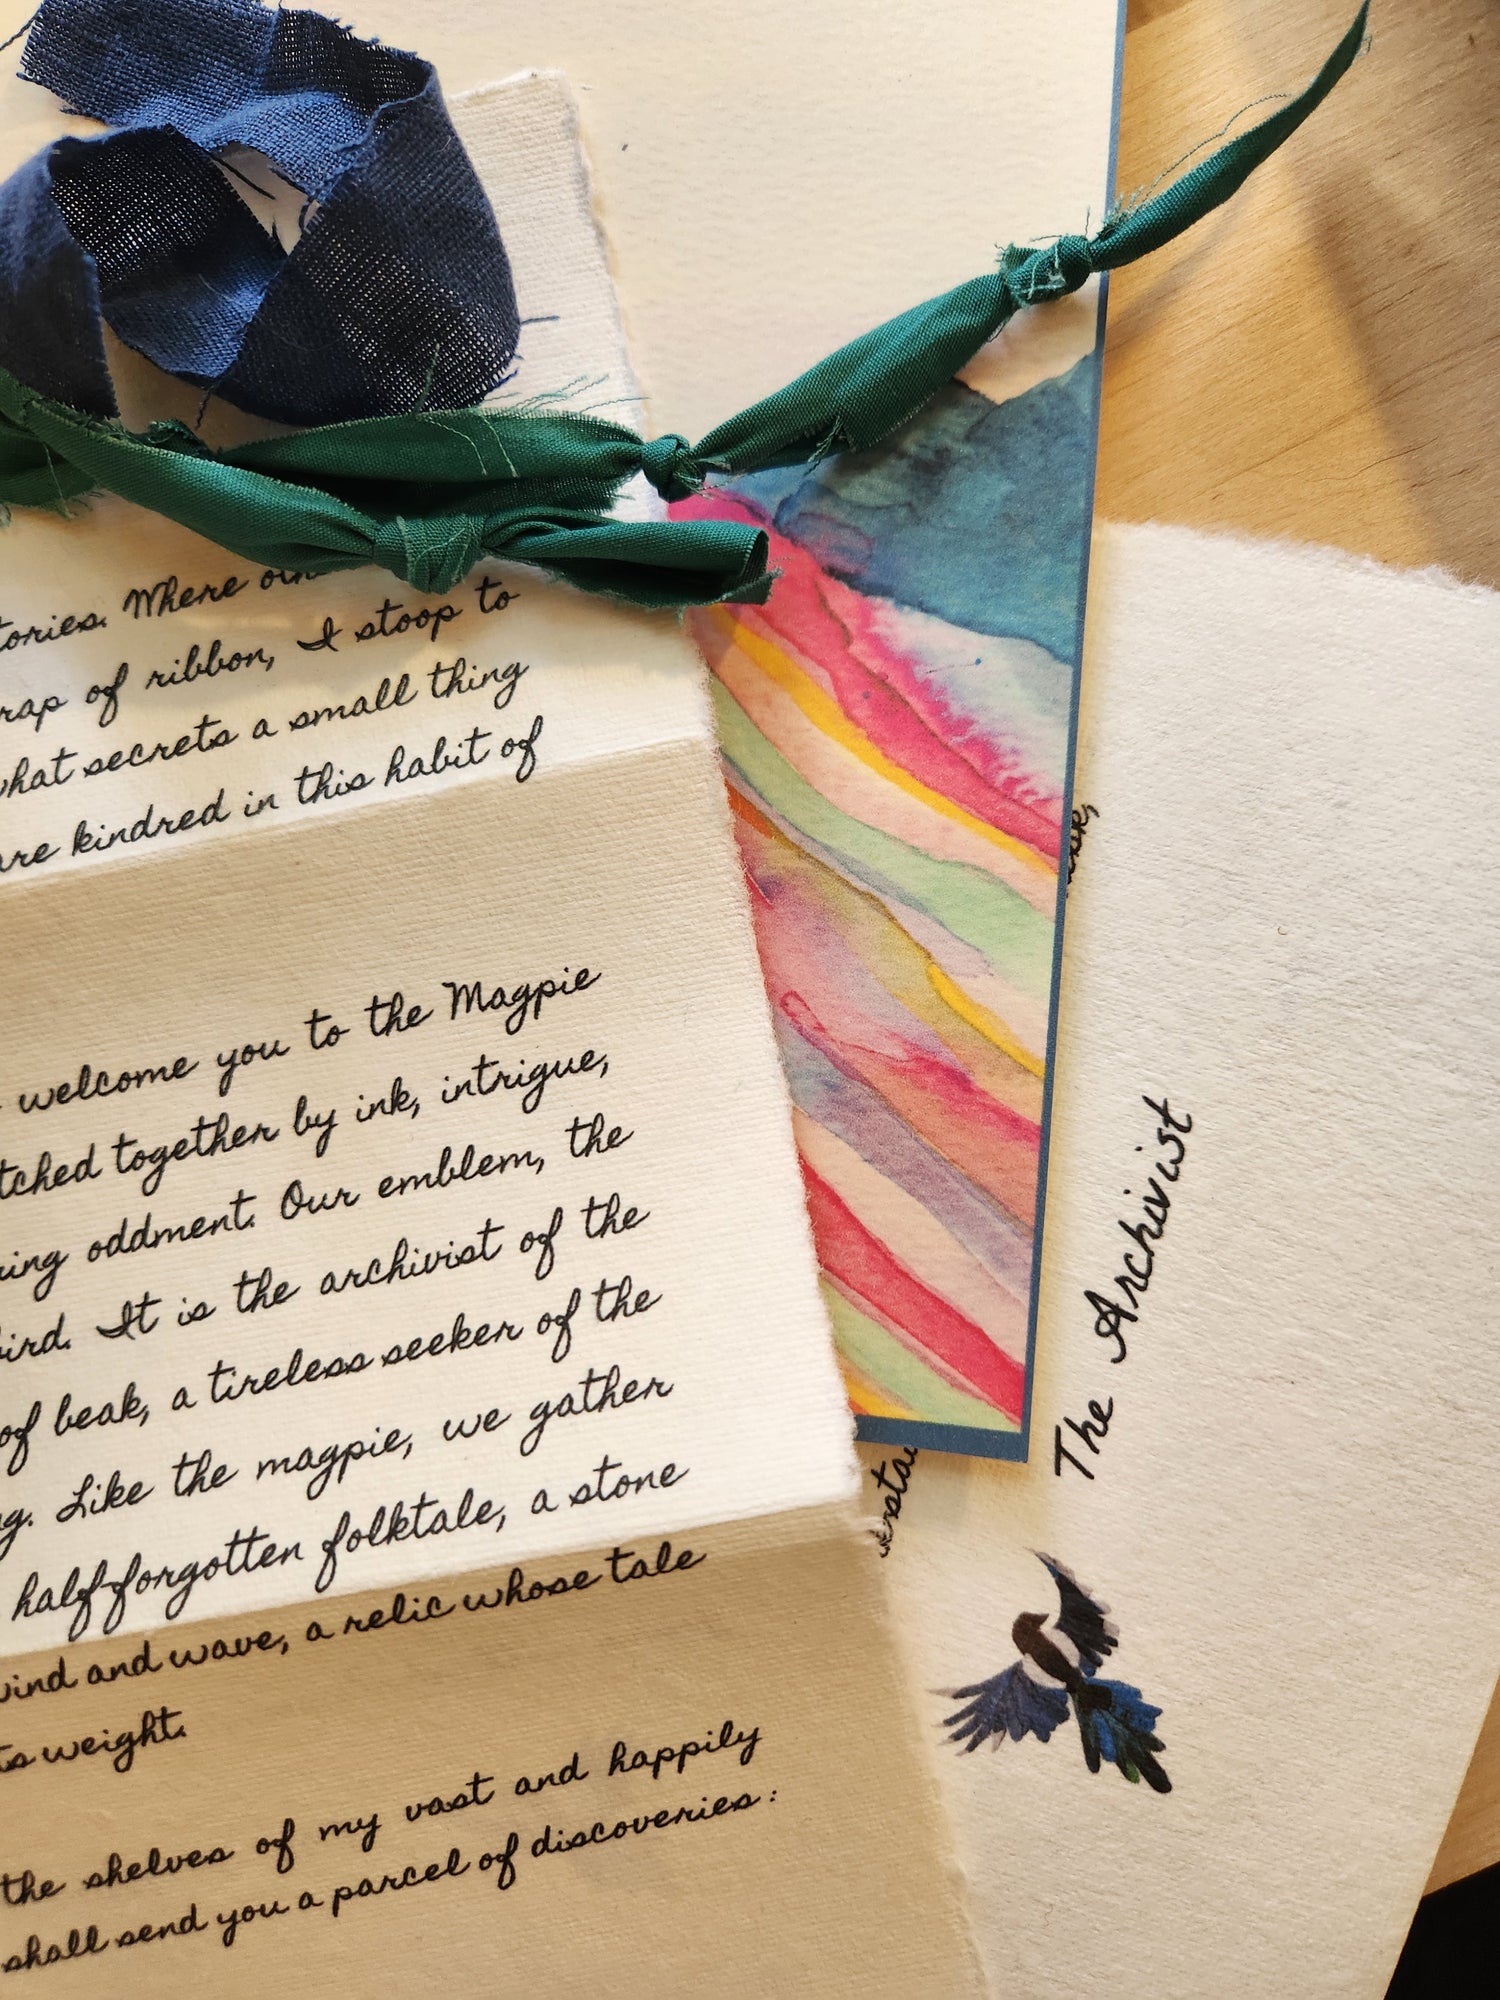 Where
of ribbon, I stoop to
what secrets a small thing
are kindred in this habit of
welcome you to the Magpie
together by ink, intrigue,
oddment. Our emblem, the
It is the archivist of the
of beak, a tireless seeker of the
Like the magpie, we gather
half-forgotten folktale, a stone
and wave, a relic whose tale
weight.
the shelves of my vast and happily
shall send you a parcel of discoveries:
The Archivist